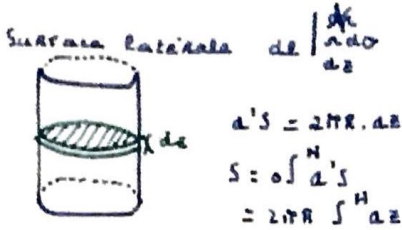 Surface latérale dl | dr
rdθ
dz
dz
d'S = 2πR.dz
S = 0∫H d'S
= 2πR ∫H dz